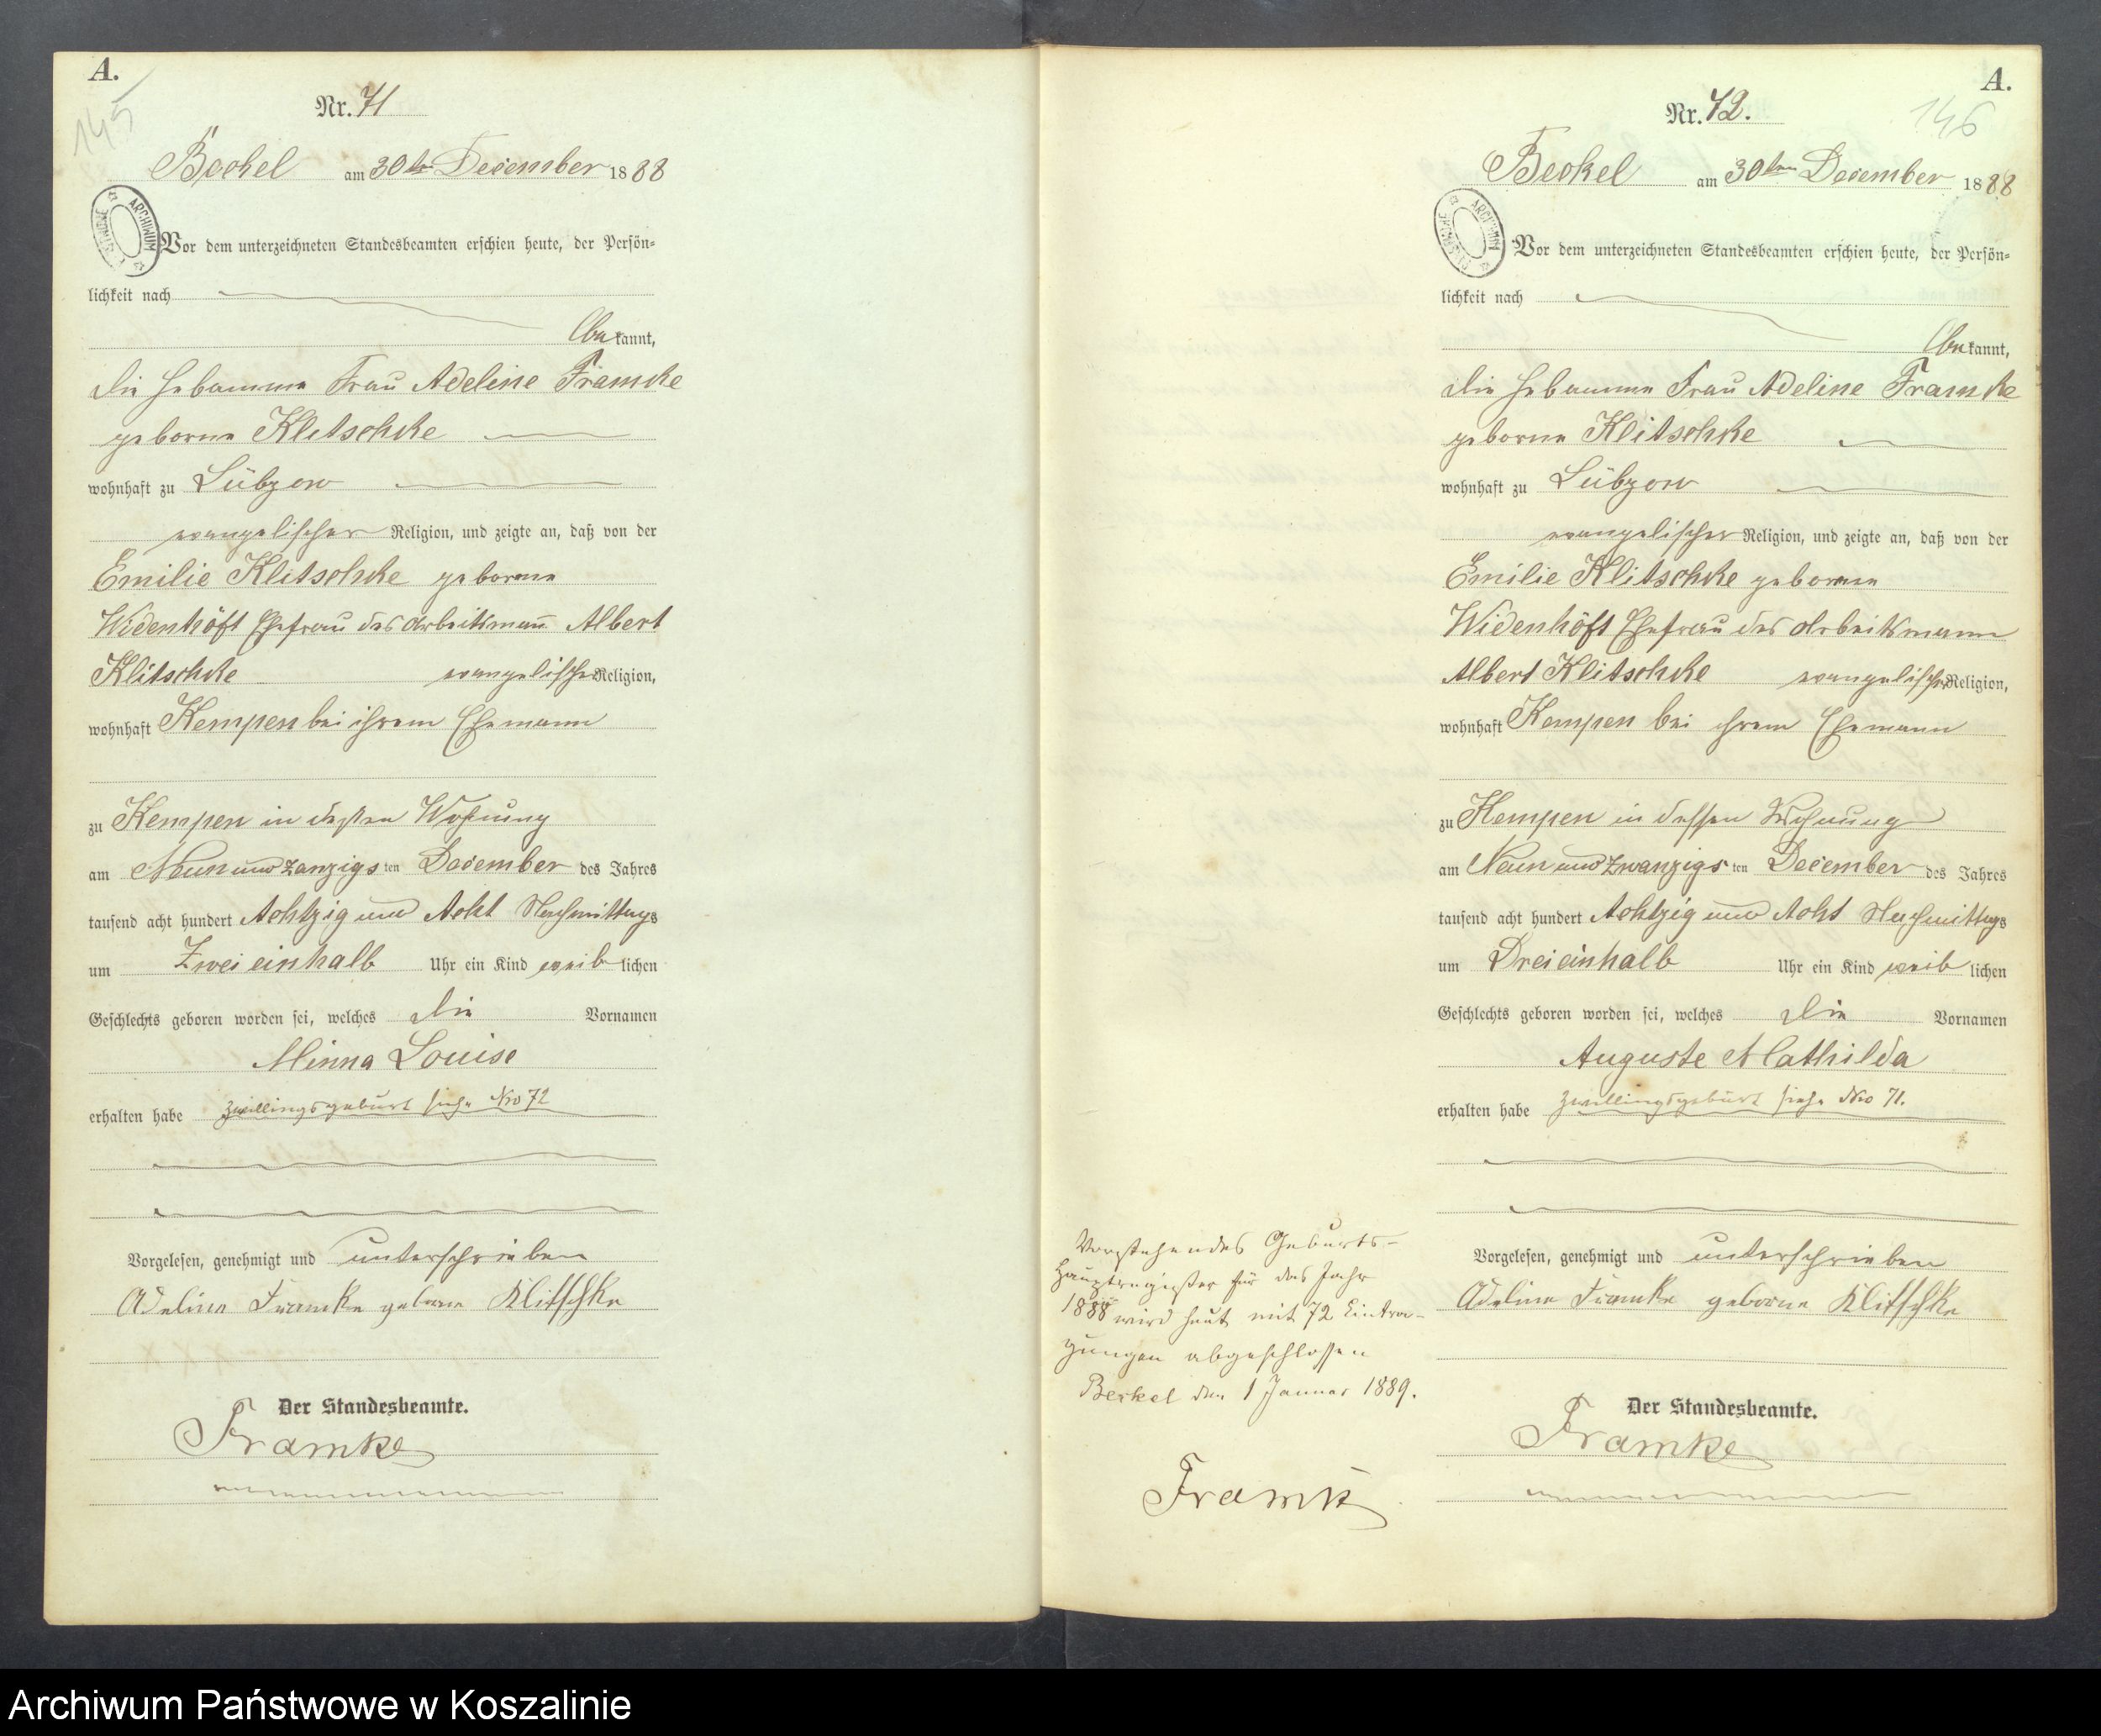 A.
145
Nr. 71
Beckel am 30ten December 1888
ARCHIWUM
Vor dem unterzeichneten Standesbeamten erschien heute, der Persön=
lichkeit nach
bekannt,
die Hebamme Frau Adeline Framcke
geborne Klitschcke
wohnhaft zu Lübzow
evangelischer Religion, und zeigte an, daß von der
Emilie Klitschcke geborne
Widenhöft Ehefrau des Arbeitsmann Albert
Klitschcke evangelischer Religion,
wohnhaft Kempen bei ihrem Ehemann
zu Kempen in dessen Wohnung
am Neun und zanzigsten December des Jahres
tausend acht hundert Achtzig und Acht Nachmittags
um Zwei einhalb Uhr ein Kind weiblichen
Geschlechts geboren worden sei, welches die Vornamen
Minna Louise
erhalten habe Zwillingsgeburt siehe Nro 72
Vorgelesen, genehmigt und unterschrieben
Adeline Framke geborne Klitschke
Der Standesbeamte.
Framke
A.
146
Nr. 72.
Beckel am 30ten December 1888
ARCHIWUM
Vor dem unterzeichneten Standesbeamten erschien heute, der Persön=
lichkeit nach
bekannt,
die Hebamme Frau Adeline Framcke
geborne Klitschcke
wohnhaft zu Lübzow
evangelischer Religion, und zeigte an, daß von der
Emilie Klitschcke geborne
Widenhöft Ehefrau des Arbeitsmann
Albert Klitschcke evangelischer Religion,
wohnhaft Kempen bei ihrem Ehemann
zu Kempen in dessen Wohnung
am Neun und zwanzigsten December des Jahres
tausend acht hundert Achtzig und Acht Nachmittags
um Dreieinhalb Uhr ein Kind weiblichen
Geschlechts geboren worden sei, welches die Vornamen
Auguste Mathilda
erhalten habe Zwillingsgeburt siehe Nro 71.
Vorgelesen, genehmigt und unterschrieben
Adeline Framke geborne Klitschke
Der Standesbeamte.
Framke
Vorstehendes Geburts-
Hauptregister für das Jahr
1888 wird heut mit 72 Eintra-
gungen abgeschlossen
Beckel den 1 Januar 1889.
Framke
Archiwum Państwowe w Koszalinie